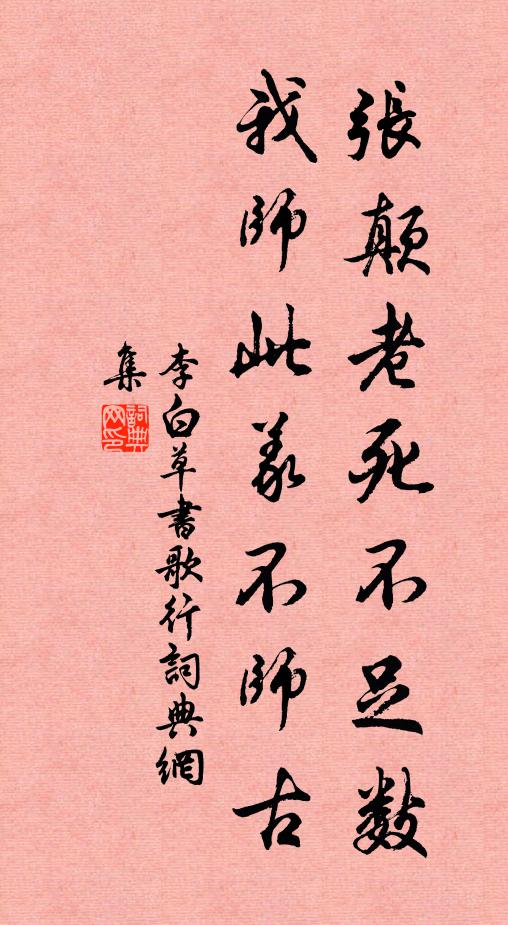 張顛老死不足數
我師此義不師古
李白草書歌行詞典網
集
詞典网印